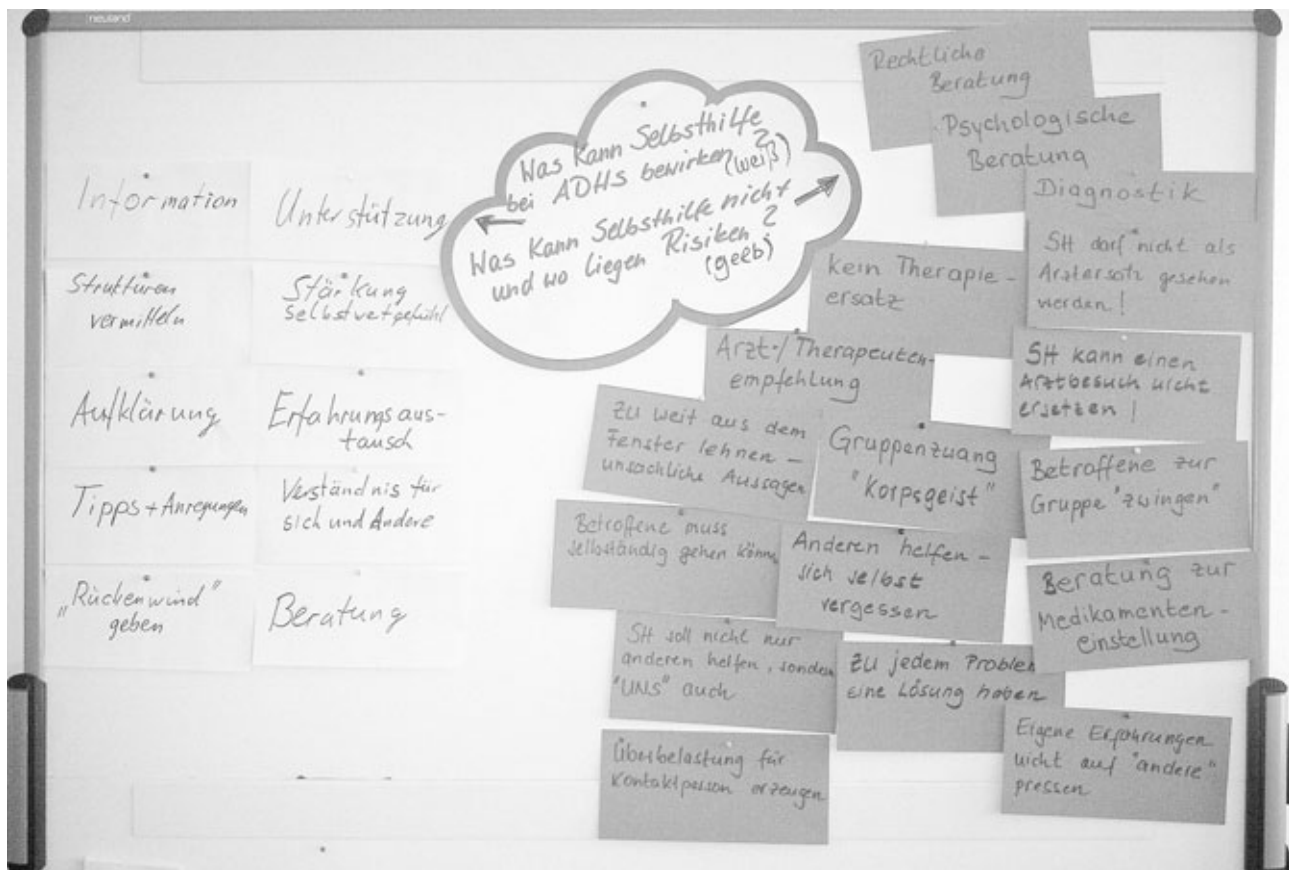 neuland
Was kann Selbsthilfe
bei ADHS bewirken?
(weiß)
Was kann Selbsthilfe nicht
und wo liegen Risiken?
(gelb)
Information
Unterstützung
Strukturen
vermitteln
Stärkung
Selbstwertgefühl
Aufklärung
Erfahrungsaus-
tausch
Tipps + Anregungen
Verständnis für
sich und Andere
„Rückenwind"
geben
Beratung
Rechtliche
Beratung
Psychologische
Beratung
Diagnostik
SH darf nicht als
Arztersatz gesehen
werden!
kein Therapie-
ersatz
Arzt-/Therapeuten-
empfehlung
SH kann einen
Arztbesuch nicht
ersetzen!
Zu weit aus dem
Fenster lehnen –
unsachliche Aussagen
Gruppenzwang
"Korpsgeist"
Betroffene zur
Gruppe "zwingen"
Betroffene muss
selbständig gehen könne
Anderen helfen –
sich selbst
vergessen
Beratung zur
Medikamenten-
einstellung
SH soll nicht nur
anderen helfen, sondern
"UNS" auch
zu jedem Problem
eine Lösung haben
Eigene Erfahrungen
nicht auf "andere"
pressen
Überbelastung für
Kontaktperson erzeugen